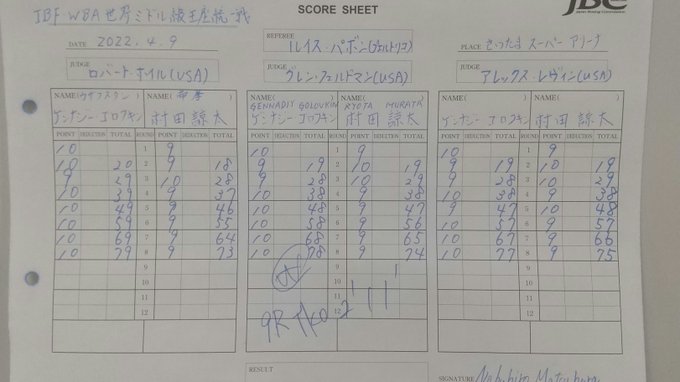 SCORE SHEET
JBC
IBF・WBA世界ミドル級王座統一戦
DATE 2022.4.9
REFEREE ルイス・パボン(プエルトリコ)
PLACE さいたまスーパーアリーナ
JUDGE ロバート・ホイル(USA)
JUDGE グレン・フェルドマン(USA)
JUDGE アレックス・レヴィン(USA)
NAME(カザフスタン) NAME(帝拳) NAME( ) NAME( ) NAME( ) NAME( )
GENNADIY GOLOVKIN RYOTA MURATA
ゲンナジー・ゴロフキン 村田諒太 ゲンナジー・ゴロフキン 村田諒太 ゲンナジー・ゴロフキン 村田諒太
POINT DEDUCTION TOTAL ROUND POINT DEDUCTION TOTAL POINT DEDUCTION TOTAL ROUND POINT DEDUCTION TOTAL POINT DEDUCTION TOTAL ROUND POINT DEDUCTION TOTAL
10 1 9 10 1 9 10 1 9
10 20 2 9 18 9 19 2 10 19 9 19 2 10 19
9 29 3 10 28 9 28 3 10 29 9 28 3 10 29
10 39 4 9 37 10 38 4 9 38 10 38 4 9 38
10 49 5 9 46 10 48 5 9 47 9 47 5 10 48
10 59 6 9 55 10 58 6 9 56 10 57 6 9 57
10 69 7 9 64 10 68 7 9 65 10 67 7 9 66
10 79 8 9 73 10 78 8 9 74 10 77 8 9 75
9 9 9
10 10 10
11 11 11
12 12 12
9R TKO 2'11"
RESULT
SIGNATURE